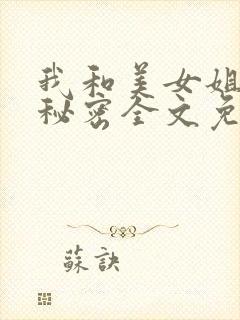 我和美女姐
秘密全文免
蘇訣